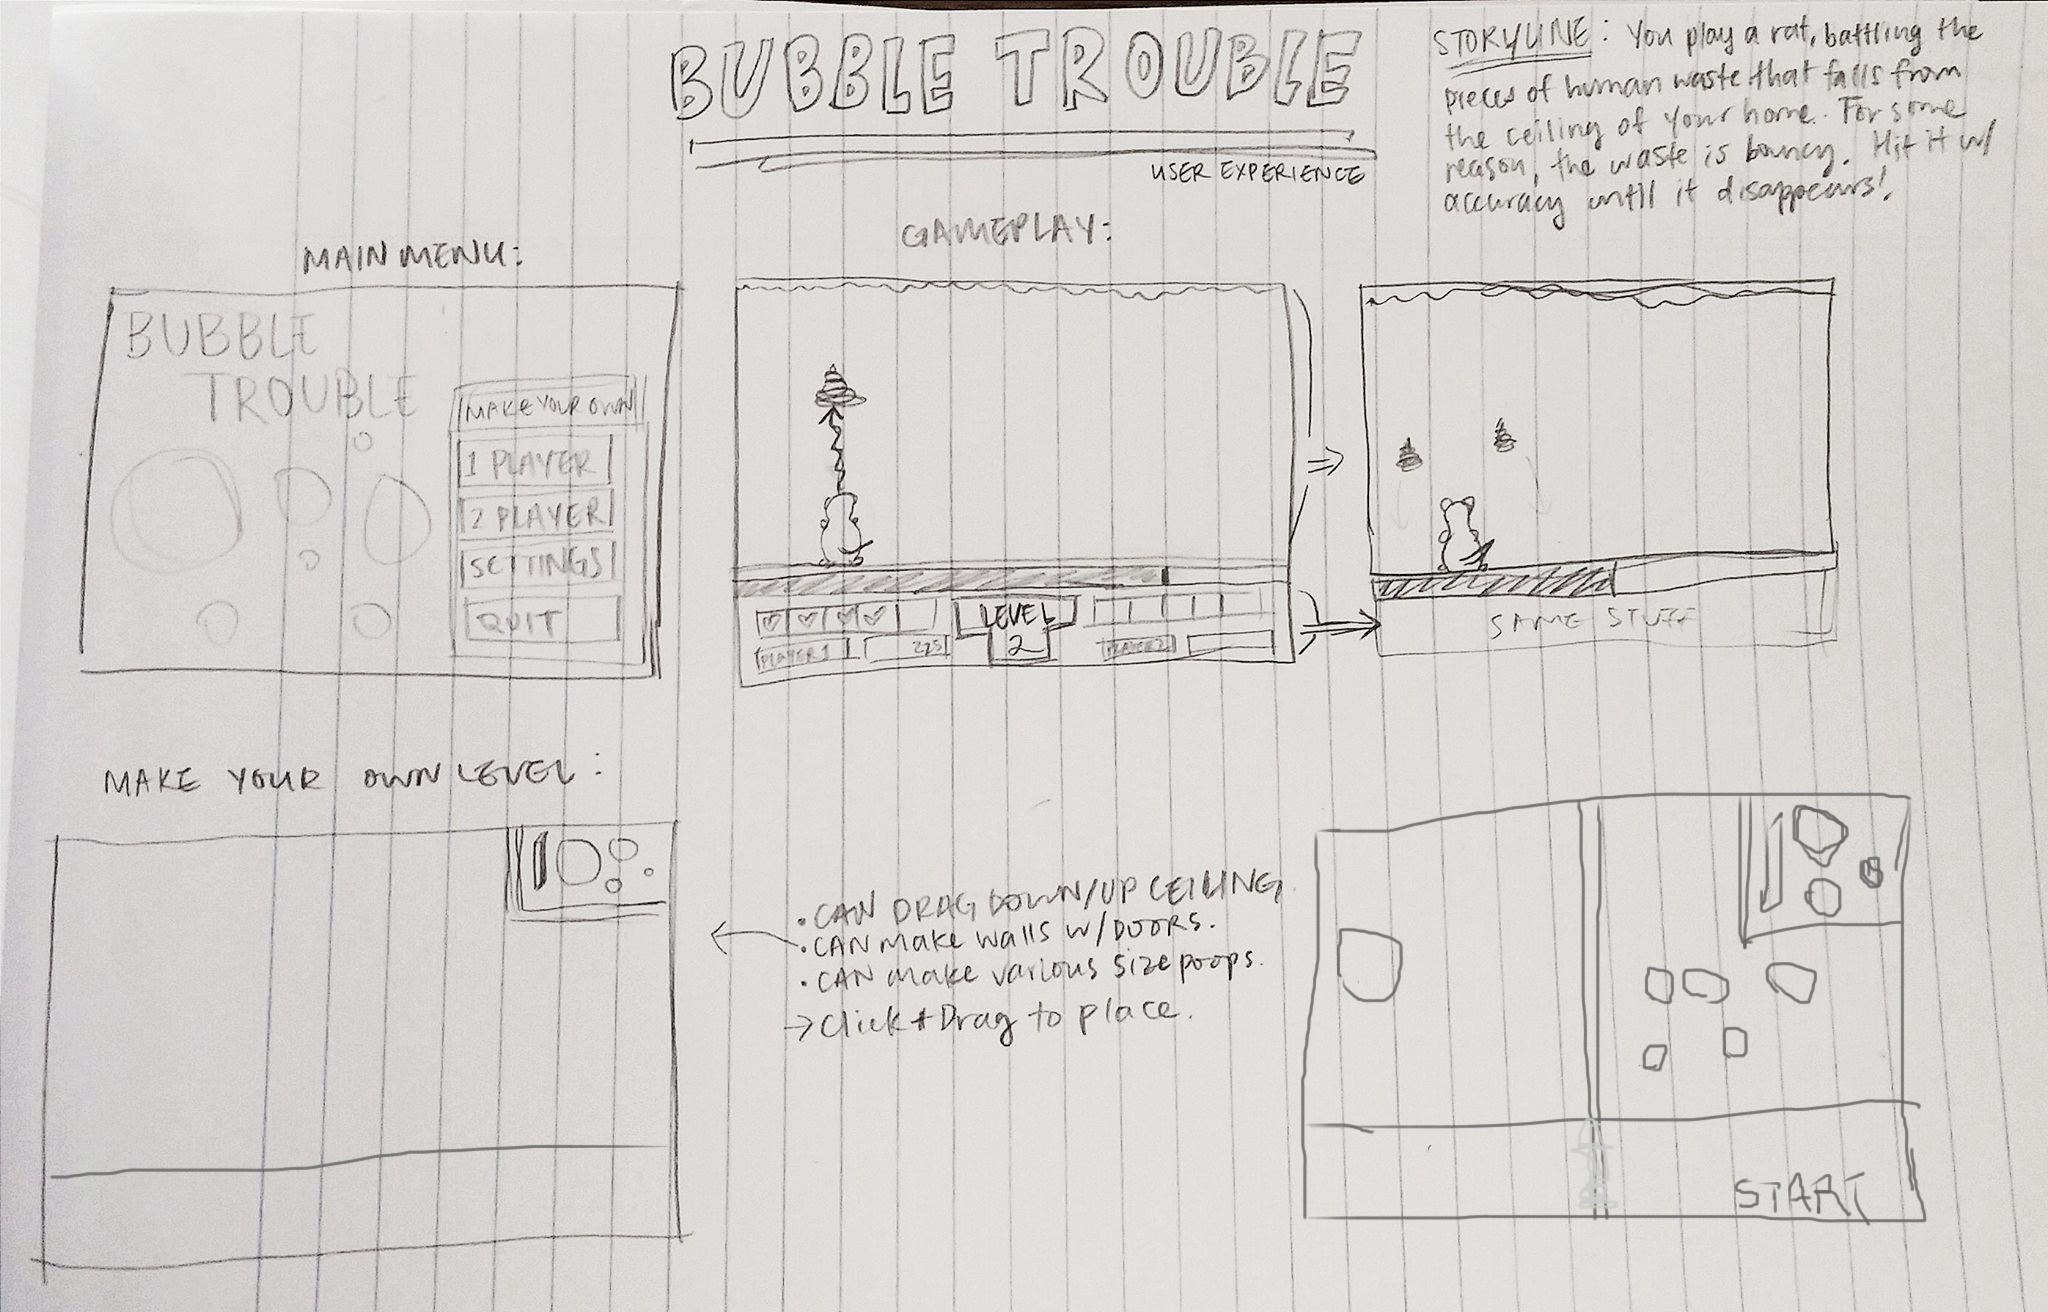 BUBBLE TROUBLE
USER EXPERIENCE
STORYLINE: You play a rat, battling the
pieces of human waste that falls from
the ceiling of your home. For some
reason, the waste is bouncy. Hit it w/
accuracy until it disappears!
MAIN MENU:
BUBBLE
TROUBLE
MAKE YOUR OWN
1 PLAYER
2 PLAYER
SETTINGS
QUIT
GAMEPLAY:
LEVEL
2
PLAYER 1
225
PLAYER 2
SAME STUFF
MAKE YOUR OWN LEVEL:
• CAN DRAG DOWN/UP CEILING
• CAN make walls w/DOORS.
• CAN make various size poops.
→ Click + Drag to place.
START